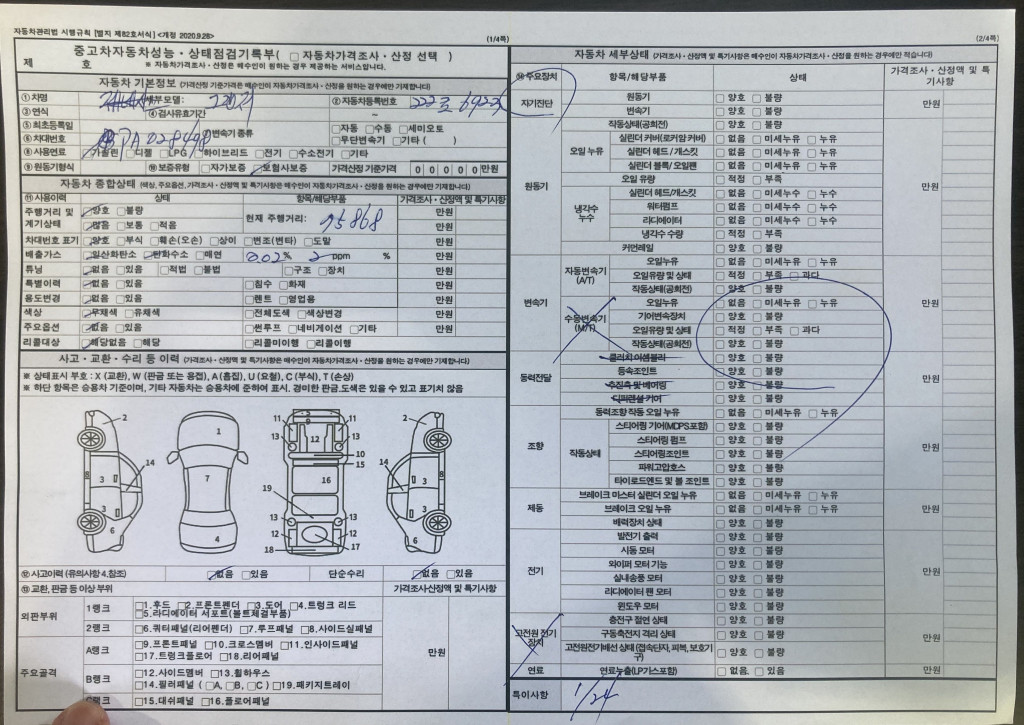 자동차관리법 시행규칙 [별지 제82호서식] <개정 2020.9.28>
(1/4쪽)
제 호
중고자동차성능·상태점검기록부( □ 자동차가격조사·산정 선택 )
※ 자동차가격조사·산정은 매수인이 원하는 경우 제공하는 서비스입니다.
자동차 기본정보 (가격산정 기준가격은 매수인이 자동차가격조사·산정을 원하는 경우에만 기재합니다)
① 차명 세부모델: 그랜저 ② 자동차등록번호 222로 6923
③ 연식 ④ 검사유효기간 ~
⑤ 최초등록일 ⑦ 변속기 종류 □자동 □수동 □세미오토
⑥ 차대번호 PA028498 □무단변속기 □기타 ( )
⑧ 사용연료 □가솔린 □디젤 □LPG □하이브리드 □전기 □수소전기 □기타
⑨ 원동기형식 ⑩ 보증유형 □자가보증 □보험사보증 가격산정 기준가격 0 0 0 0 0 만원
자동차 종합상태 (색상, 주요옵션, 가격조사·산정액 및 특기사항은 매수인이 자동차가격조사·산정을 원하는 경우에만 기재합니다)
⑪ 사용이력 상태 항목/해당부품 가격조사·산정액 및 특기사항
주행거리 및 계기상태 □양호 □불량 현재 주행거리: 95868 만원
□많음 □보통 □적음 만원
차대번호 표기 □양호 □부식 □훼손(오손) □상이 □변조(변타) □도말 만원
배출가스 □일산화탄소 □탄화수소 □매연 0.02 % 2 ppm % 만원
튜닝 □없음 □있음 □적법 □불법 □구조 □장치 만원
특별이력 □없음 □있음 □침수 □화재 만원
용도변경 □없음 □있음 □렌트 □영업용 만원
색상 □무채색 □유채색 □전체도색 □색상변경 만원
주요옵션 □없음 □있음 □썬루프 □네비게이션 □기타 만원
리콜대상 □해당없음 □해당 □리콜이행 □리콜미이행
사고·교환·수리 등 이력 (가격조사·산정액 및 특기사항은 매수인이 자동차가격조사·산정을 원하는 경우에만 기재합니다)
※ 상태표시 부호 : X (교환), W (판금 또는 용접), A (흠집), U (요철), C (부식), T (손상)
※ 하단 항목은 승용차 기준이며, 기타 자동차는 승용차에 준하여 표시. 경미한 판금,도색은 있을 수 있고 표기치 않음
2 1 11 5 9 11 2
13 12 13
10
14 15 14
8 3 7 16 3 8
19
3 3
13 13
6 4 12 12 6
18 17
⑫ 사고이력 (유의사항 4.참조) □없음 □있음 단순수리 □없음 □있음
⑬ 교환, 판금 등 이상 부위 가격조사산정액 및 특기사항
외판부위 1랭크 □1.후드 □2.프론트펜더 □3.도어 □4.트렁크 리드
□5.라디에이터 서포트(볼트체결부품)
2랭크 □6.쿼터패널(리어펜더) □7.루프패널 □8.사이드실패널
주요골격 A랭크 □9.프론트패널 □10.크로스멤버 □11.인사이드패널 만원
□17.트렁크플로어 □18.리어패널
B랭크 □12.사이드멤버 □13.휠하우스
□14.필러패널 ( □A, □B, □C ) □19.패키지트레이
C랭크 □15.대쉬패널 □16.플로어패널
(2/4쪽)
자동차 세부상태 (가격조사·산정액 및 특기사항은 매수인이 자동차가격조사·산정을 원하는 경우에만 적습니다)
⑭ 주요장치 항목/해당부품 상태 가격조사·산정액 및 특기사항
자기진단 원동기 □양호 □불량 만원
변속기 □양호 □불량
원동기 작동상태(공회전) □양호 □불량 만원
오일 누유 실린더 커버(로커암 커버) □없음 □미세누유 □누유
실린더 헤드 / 개스킷 □없음 □미세누유 □누유
실린더 블록 / 오일팬 □없음 □미세누유 □누유
오일 유량 □적정 □부족
냉각수 누수 실린더 헤드/개스킷 □없음 □미세누수 □누수
워터펌프 □없음 □미세누수 □누수
라디에이터 □없음 □미세누수 □누수
냉각수 수량 □적정 □부족
커먼레일 □양호 □불량
변속기 자동변속기 (A/T) 오일누유 □없음 □미세누유 □누유 만원
오일유량 및 상태 □적정 □부족 □과다
작동상태(공회전) □양호 □불량
수동변속기 (M/T) 오일누유 □없음 □미세누유 □누유
기어변속장치 □양호 □불량
오일유량 및 상태 □적정 □부족 □과다
작동상태(공회전) □양호 □불량
동력전달 클러치 어셈블리 □양호 □불량 만원
등속조인트 □양호 □불량
추진축 및 베어링 □양호 □불량
디퍼렌셜 기어 □양호 □불량
조향 동력조향 작동 오일 누유 □없음 □미세누유 □누유 만원
작동상태 스티어링 기어(MDPS포함) □양호 □불량
스티어링 펌프 □양호 □불량
스티어링조인트 □양호 □불량
파워고압호스 □양호 □불량
타이로드엔드 및 볼 조인트 □양호 □불량
제동 브레이크 마스터 실린더 오일 누유 □없음 □미세누유 □누유 만원
브레이크 오일 누유 □없음 □미세누유 □누유
배력장치 상태 □양호 □불량
전기 발전기 출력 □양호 □불량 만원
시동 모터 □양호 □불량
와이퍼 모터 기능 □양호 □불량
실내송풍 모터 □양호 □불량
라디에이터 팬 모터 □양호 □불량
윈도우 모터 □양호 □불량
고전원 전기장치 충전구 절연 상태 □양호 □불량 만원
구동축전지 격리 상태 □양호 □불량
고전원전기배선 상태 (접속단자, 피복, 보호기구) □양호 □불량
연료 연료누출(LP가스포함) □없음. □있음 만원
특이사항 1/24